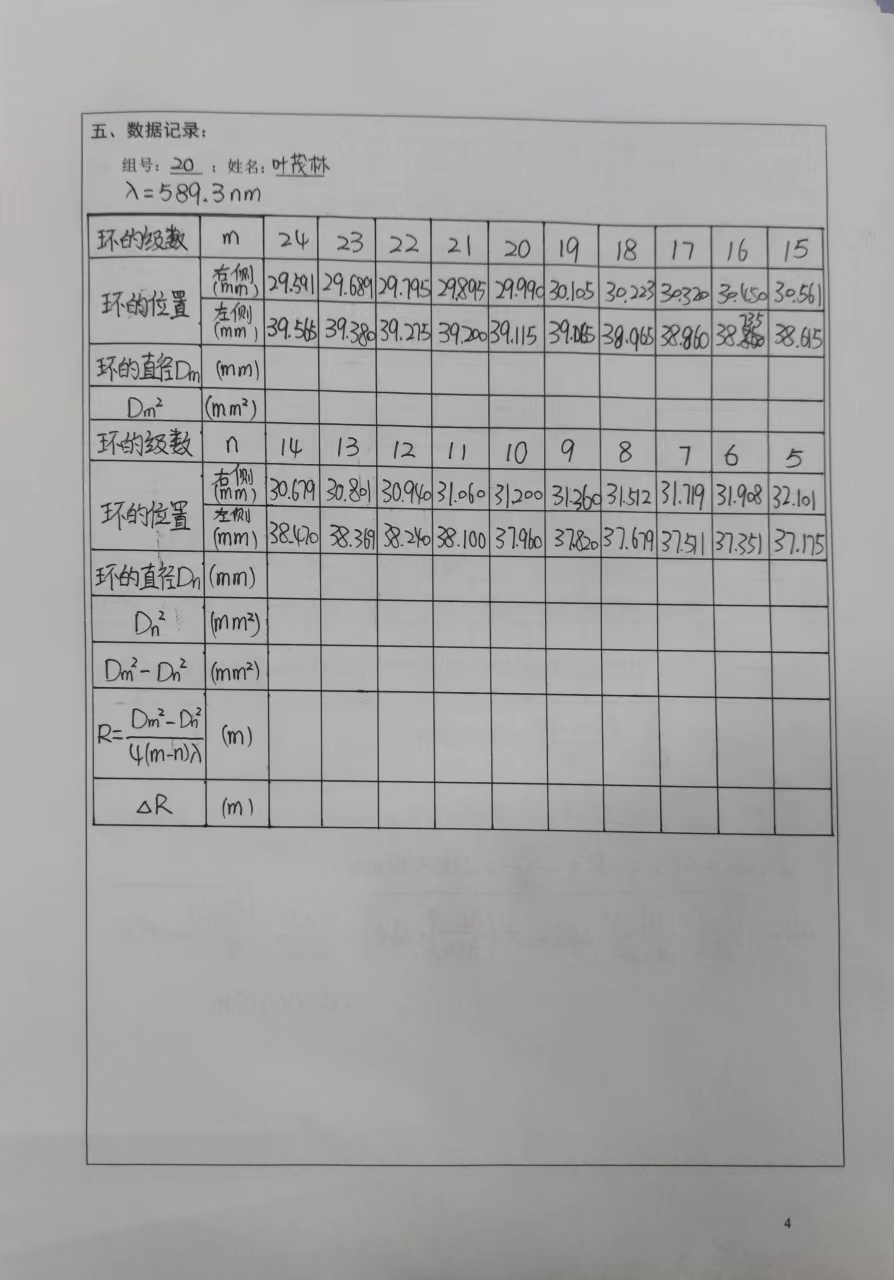 五、数据记录:
组号: 20 ; 姓名: 叶茂林
λ=589.3nm
环的级数 m 24 23 22 21 20 19 18 17 16 15
环的位置 右侧(mm) 29.591 29.689 29.795 29.895 29.990 30.105 30.223 30.320 30.450 30.561
左侧(mm) 39.565 39.380 39.275 39.200 39.115 39.085 38.965 38.860 38.735 38.615
环的直径Dm (mm)
Dm² (mm²)
环的级数 n 14 13 12 11 10 9 8 7 6 5
环的位置 右侧(mm) 30.679 30.801 30.940 31.060 31.200 31.360 31.512 31.719 31.908 32.101
左侧(mm) 38.470 38.369 38.240 38.100 37.960 37.820 37.679 37.511 37.351 37.175
环的直径Dn (mm)
Dn² (mm²)
Dm²-Dn² (mm²)
R=Dm²-Dn²/4(m-n)λ (m)
△R (m)
4